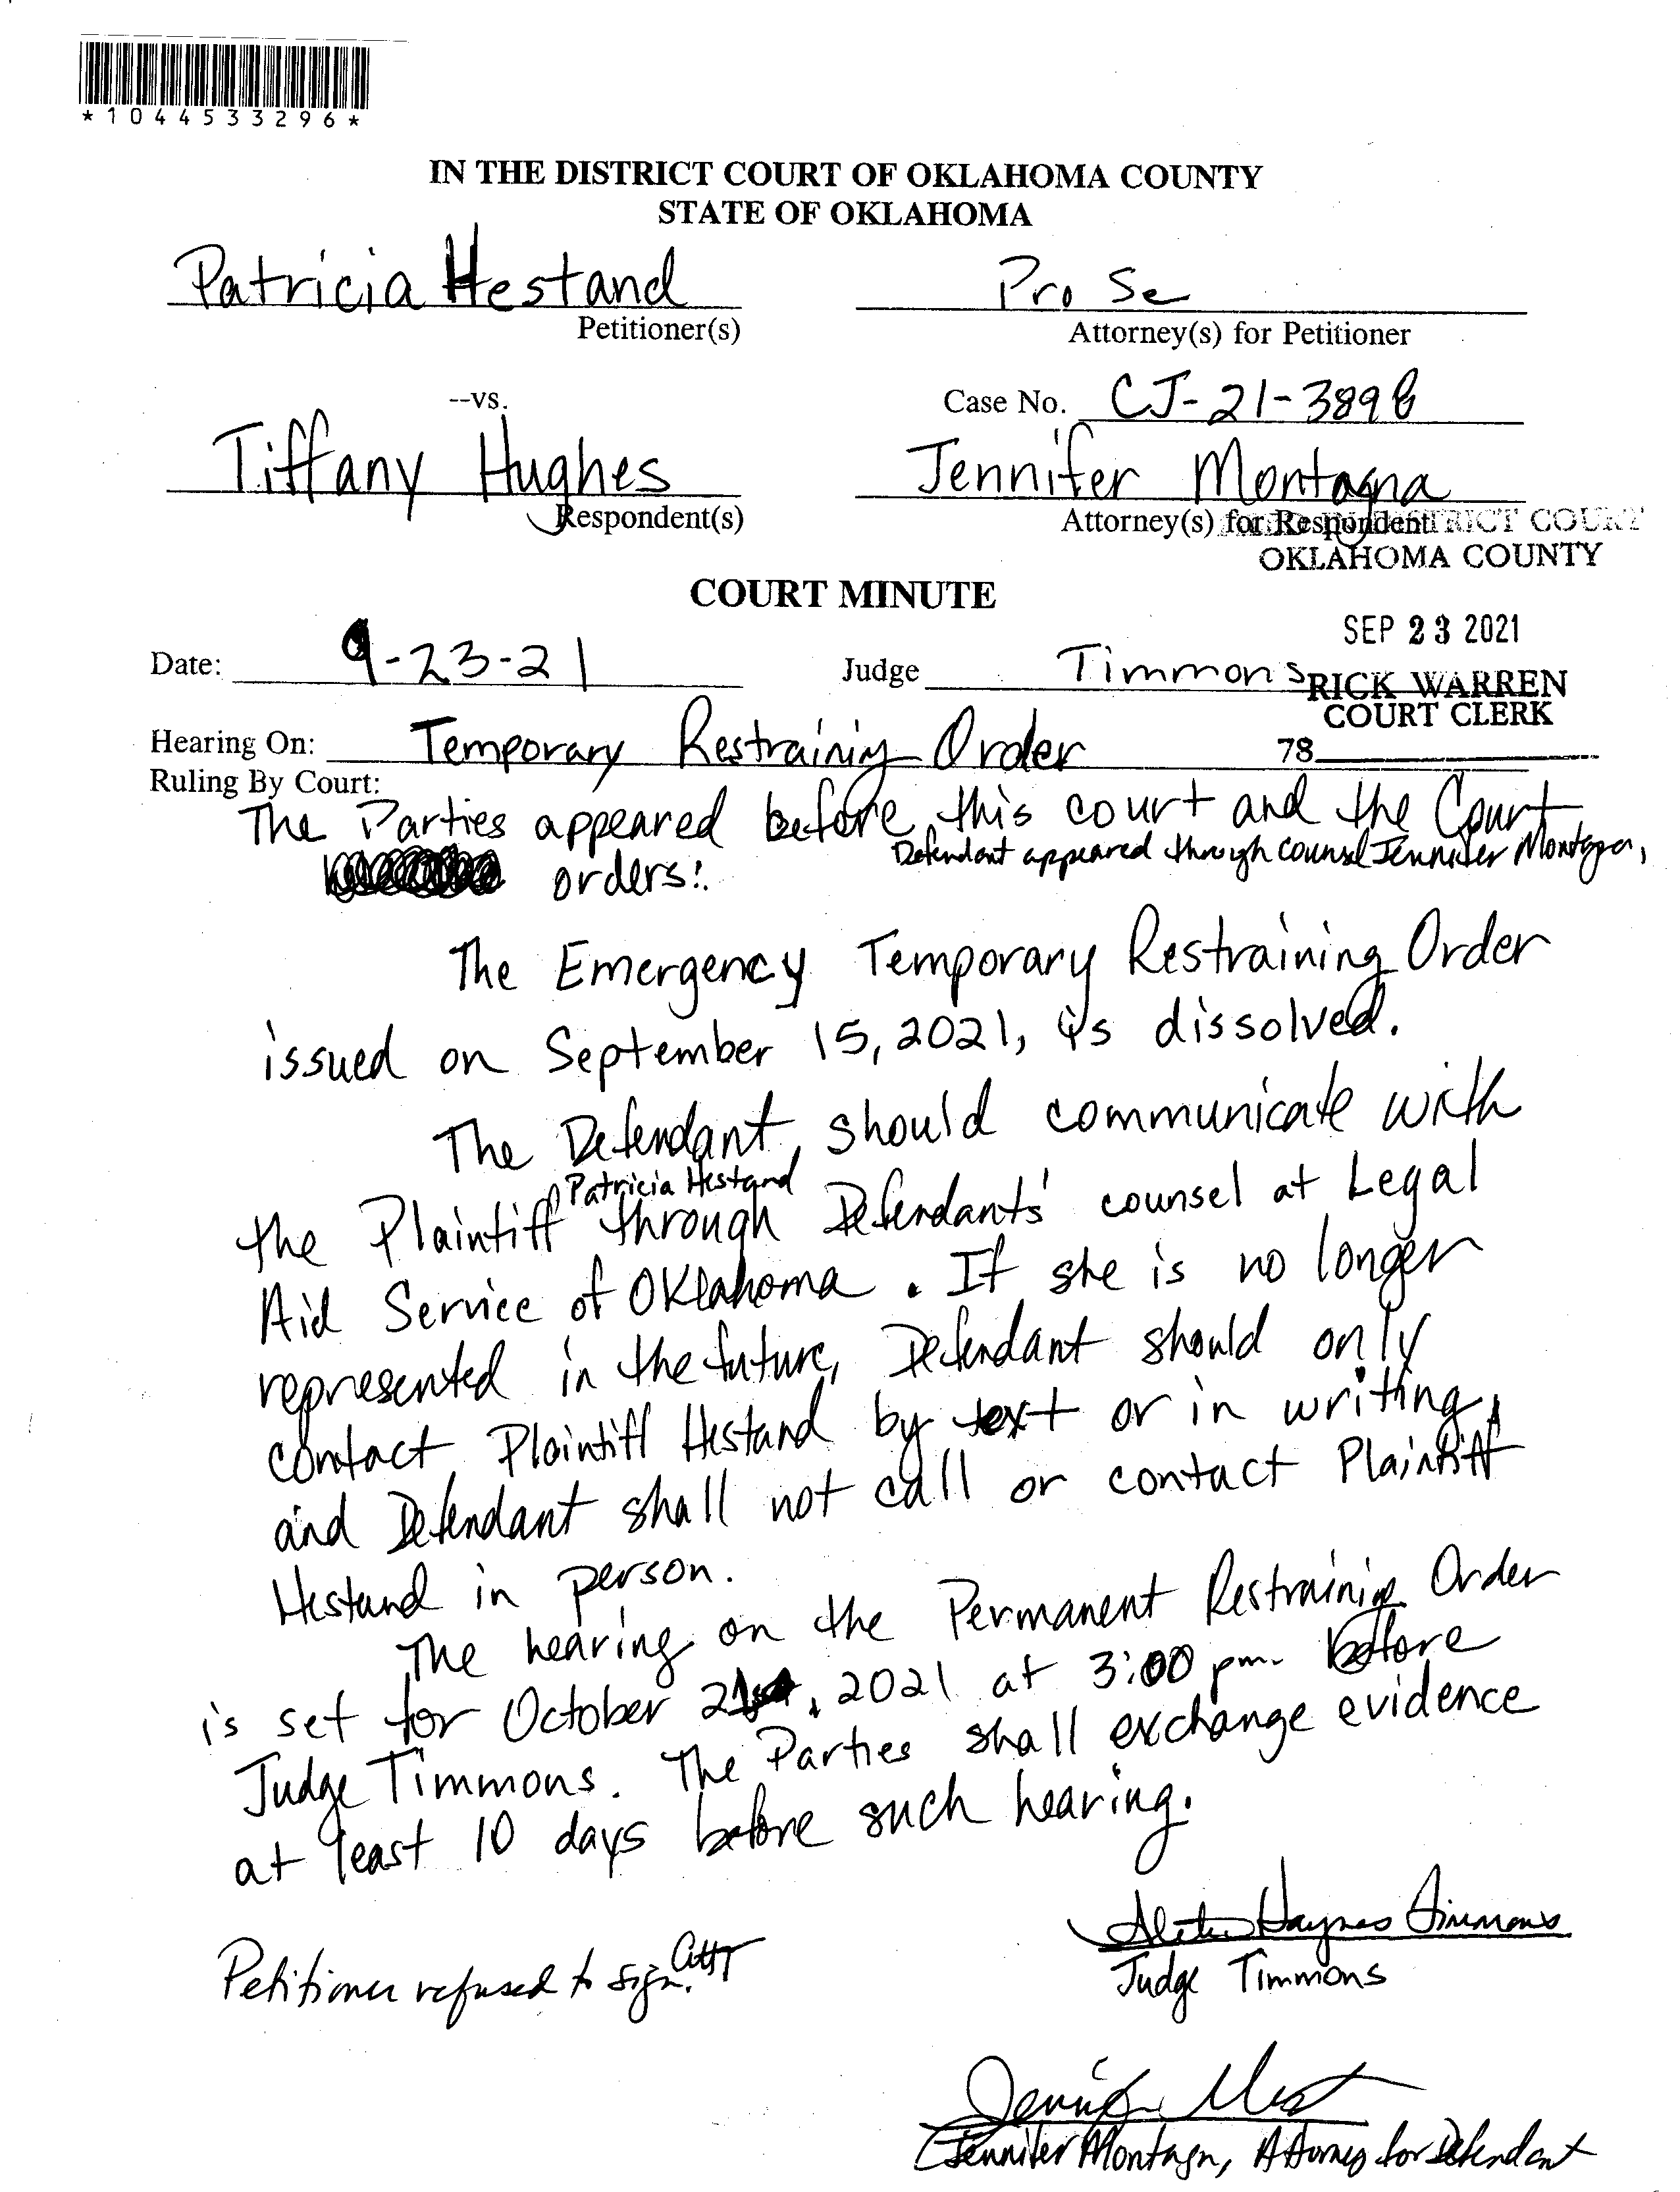 *1044533296*
IN THE DISTRICT COURT OF OKLAHOMA COUNTY
STATE OF OKLAHOMA
Patricia Hestand
Petitioner(s)
Pro Se
Attorney(s) for Petitioner
--vs.
Case No. CJ-21-3898
Tiffany Hughes
Respondent(s)
Jennifer Montagna
Attorney(s) for Respondent
DISTRICT COURT
OKLAHOMA COUNTY
COURT MINUTE
SEP 23 2021
Date: 9-23-21
Judge Timmons
RICK WARREN
COURT CLERK
78
Hearing On: Temporary Restraining Order
Ruling By Court:
The Parties appeared before this court and the Court
Defendant appeared through counsel Jennifer Montagna,
orders:
The Emergency Temporary Restraining Order
issued on September 15, 2021, is dissolved.
The Defendant should communicate with
Patricia Hestand
the Plaintiff through Defendants' counsel at Legal
Aid Service of Oklahoma. If she is no longer
represented in the future, Defendant should only
contact Plaintiff Hestand by text or in writing,
and Defendant shall not call or contact Plaintiff
Hestand in person.
The hearing on the Permanent Restraining Order
is set for October 21, 2021 at 3:00 pm. before
Judge Timmons. The Parties shall exchange evidence
at least 10 days before such hearing.
Haynes Timmons
Judge Timmons
Petitioner refused to sign.
Jennifer Montagna, Attorney for Defendant